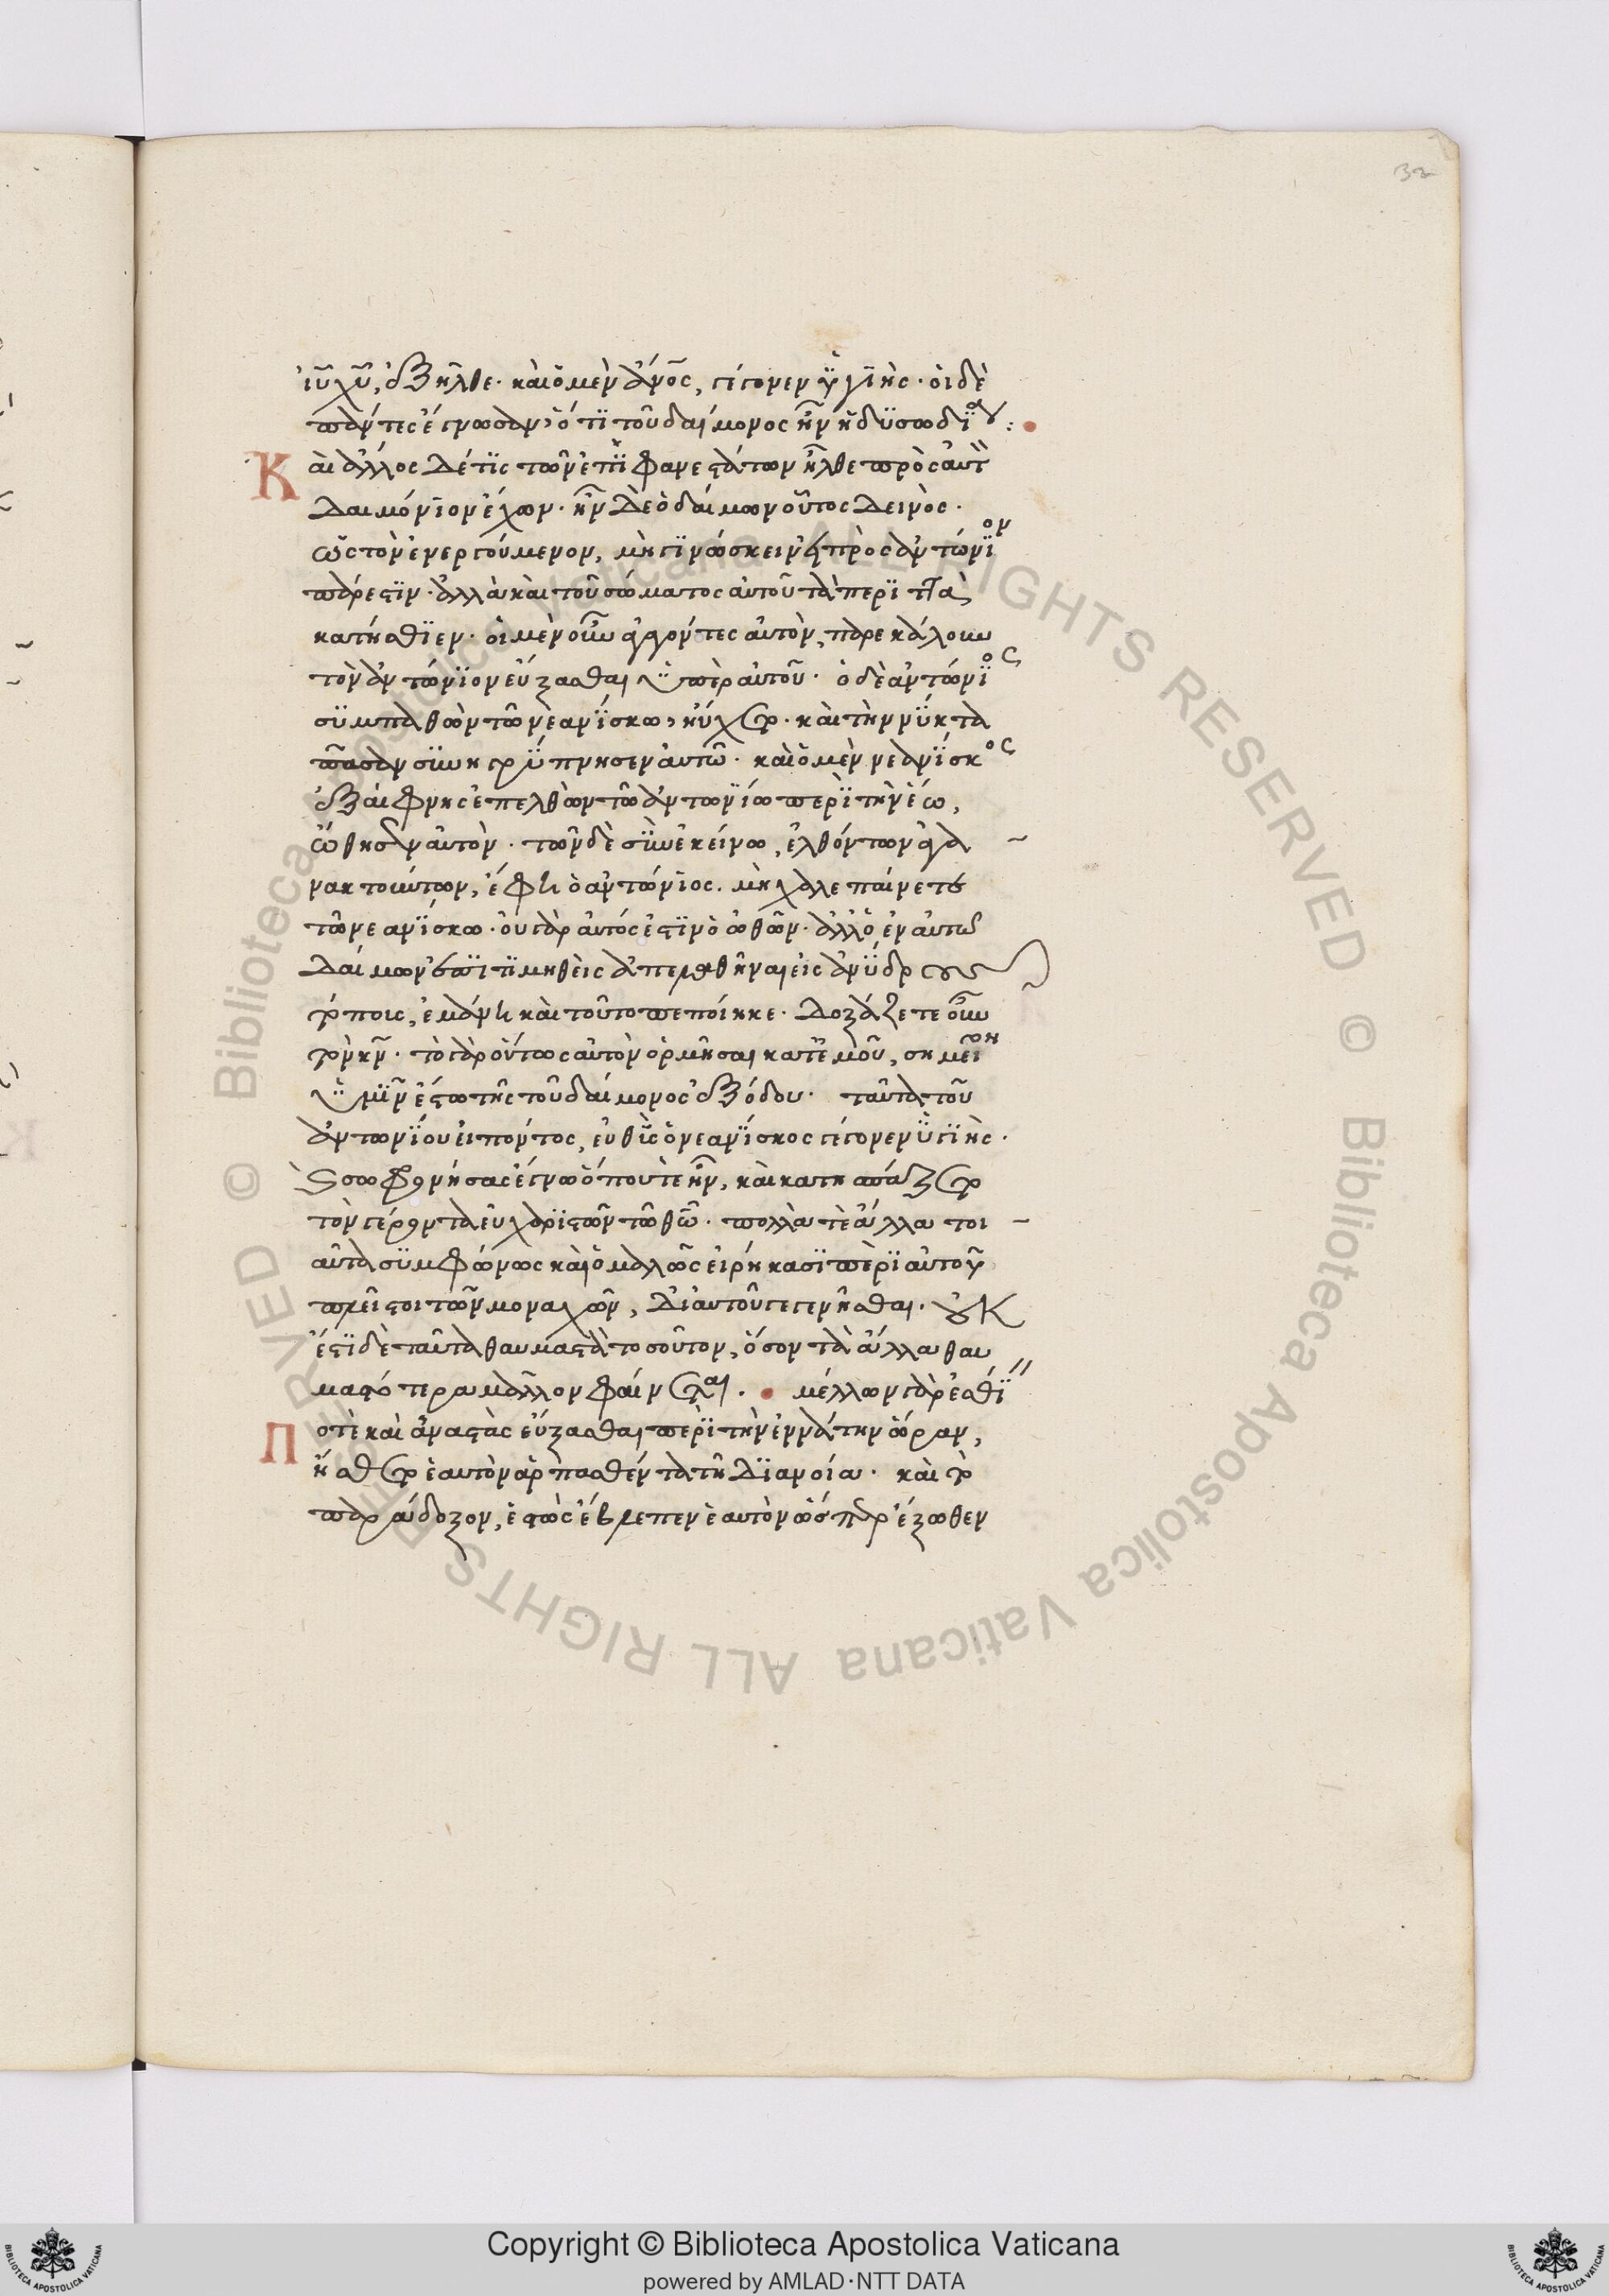 32
ἰῦ χῦ, ἐξῆλθε· καὶ ὁ μὲν ἄνος, γέγονεν ὑγιὴς· οἱ δὲ
πάντες ἔγνωσαν, ὅτι τοῦ δαίμονος ἦν ἡ δυσωδία :
Καὶ ἄλλος δέ τις τῶν ἐπιφανεστάτων ἦλθε πρὸς αὐτὸν
δαιμόνιον ἔχων· ἦν δὲ ὁ δαίμων οὗτος δεινὸς·
ὡς τὸν ἐνεργούμενον, μὴ γινώσκειν εἰ πρὸς ἀντώνιον
πάρεστιν· ἀλλὰ καὶ τοῦ σώματος αὐτοῦ τὰ περιττὰ
κατήσθιεν· οἱ μὲν οὖν φέροντες αὐτὸν, παρεκάλουν
τὸν ἀντώνιον εὔξασθαι ὑπὲρ αὐτοῦ· ὁ δὲ ἀντώνιος
συμπαθῶν τῷ νεανίσκω, ηὔχετο· καὶ τὴν νύκτα
πᾶσαν συνηγρύπνησεν αὐτῷ· καὶ ὁ μὲν νεανίσκος
ἐξαίφνης ἐπελθὼν τῷ ἀντωνίω περὶ τὴν ἕω,
ὤθησεν αὐτὸν· τῶν δὲ σὺν ἐκείνω, ἐλθόντων ἀγα
νακτούντων, ἔφη ὁ ἀντώνιος. μὴ χαλεπαίνετε
τῷ νεανίσκω· οὐ γὰρ αὐτός ἐστιν ὁ ὠθῶν· ἀλλ' ὁ ἐν αὐτῷ
δαίμων· καὶ ἐπιτιμηθεὶς ἀπελθῆναι εἰς ἀνύδρους
τόποις, ἐμάνη καὶ τοῦτο πεποίηκε· δοξάζετε οὖν
τὸν κν̄· τὸ γὰρ οὕτως αὐτὸν ὁρμῆσαι κατ' ἐμοῦ, σημεῖον
ὑμῖν ἔστω τῆς τοῦ δαίμονος ἐξόδου· ταῦτα τοῦ
ἀντωνίου εἰπόντος, εὐθὺς ὁ νεανίσκος γέγονεν ὑγιὴς·
καὶ σωφρονήσας ἔγνω ὅπου τε ἦν, καὶ κατησπάζετο
τὸν γέροντα εὐχαριστῶν τῷ θῶ· πολλὰ τὲ ἄλλα τοι
αῦτα συμφώνως καὶ ὁμαλῶς εἰρήκασι περὶ αὐτοῦ
πλεῖστοι τῶν μοναχῶν, δι' αὐτοῦ γεγενῆσθαι· οὐκ
ἔστι δὲ ταῦτα θαυμαστὰ τοσοῦτον, ὅσον τὰ ἄλλα θαυ
μαστότερα μᾶλλον φαίνεται· μέλλων γὰρ ἐσθίειν
Ποτὲ καὶ ἀναστὰς εὔξασθαι περὶ τὴν ἐννάτην ὥραν,
ἤσθετο ἑαυτὸν ἁρπασθέντα τῆ διανοία· καὶ τὸ
παράδοξον, ἑστὼς ἔβλεπεν ἑαυτὸν ὥσπερ ἔξωθεν
Copyright © Biblioteca Apostolica Vaticana
powered by AMLAD·NTT DATA